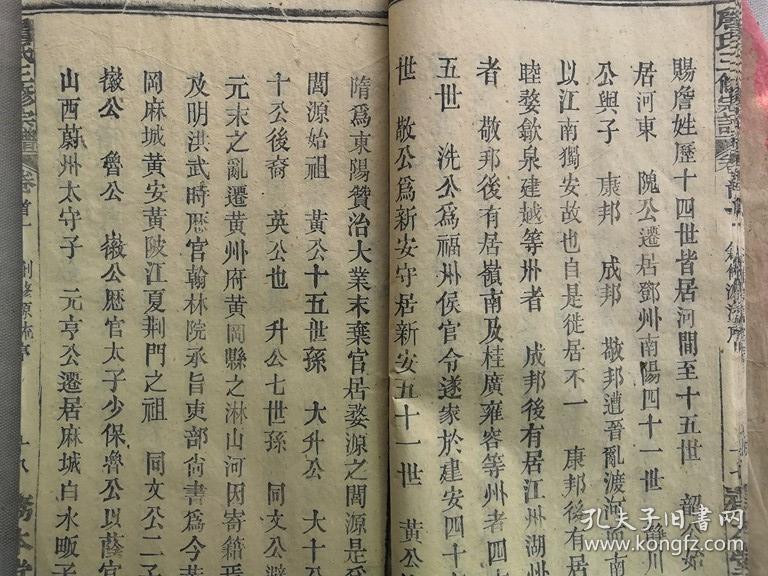 賜詹姓歷十四世皆居河間至十五世 韶
居河東 隗公遷居鄧州南陽四十一世 廣川
公與子 康邦 成邦 敬邦遭晉亂渡河
以江南獨安故也自是徙居不一 康邦後有居
睦婺歙泉建越等州者 成邦後有居江州湖州
者 敬邦後有居嶺南及桂廣雍容等州者四十
五世 洗公爲福州侯官令遂家於建安四十
世 敬公爲新安守居新安五十一世 黃公
隋爲東陽贊治大業末棄官居婺源之閶源是
閶源始祖 黃公十五世孫 大升公 大十
十公後裔 英公也 升公七世孫 同文公避
元末之亂遷黃州府黃岡縣之淋山河因寄籍焉
及明洪武時歷官翰林院承旨吏部尙書爲今
岡麻城黃安黃陂江夏荆門之祖 同文公二子
徽公 魯公 徽公歷官太子少保魯公以蔭官
山西蔚州太守子 元亨公遷居麻城白水畈子
詹氏三修宗譜
卷首
孔夫子旧书网
www.kongfz.com